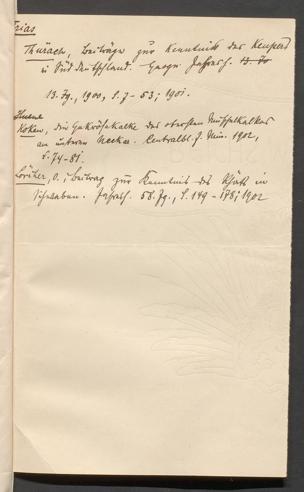 Trias
Thürach, Beiträge zur Kenntnis des Keupers
in Süd-Deutschland. Geogn. Jahresh. 13. Jg
13. Jg., 1900, S. 7-53; 1901.
Koken, die Gekrösekalke des obersten Muschelkalkes
am unteren Neckar. Centralbl. f. Min. 1902,
S. 74-81.
Lörcher, O.; Beitrag zur Kenntnis des Rhäts in
Schwaben. Jahresh. 58. Jg., S. 149-178; 1902